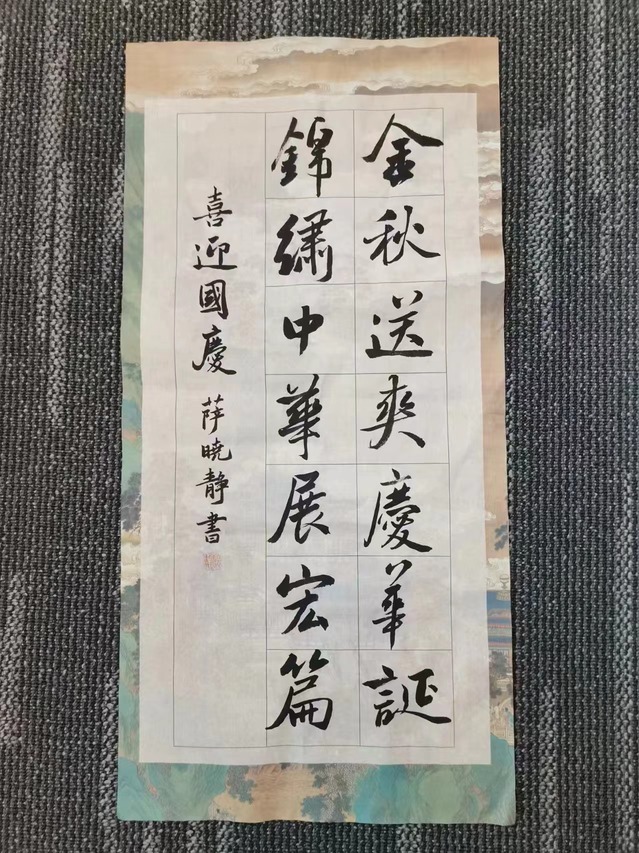 金秋送爽慶華誕
錦繡中華展宏篇
喜迎國慶 萨曉靜書